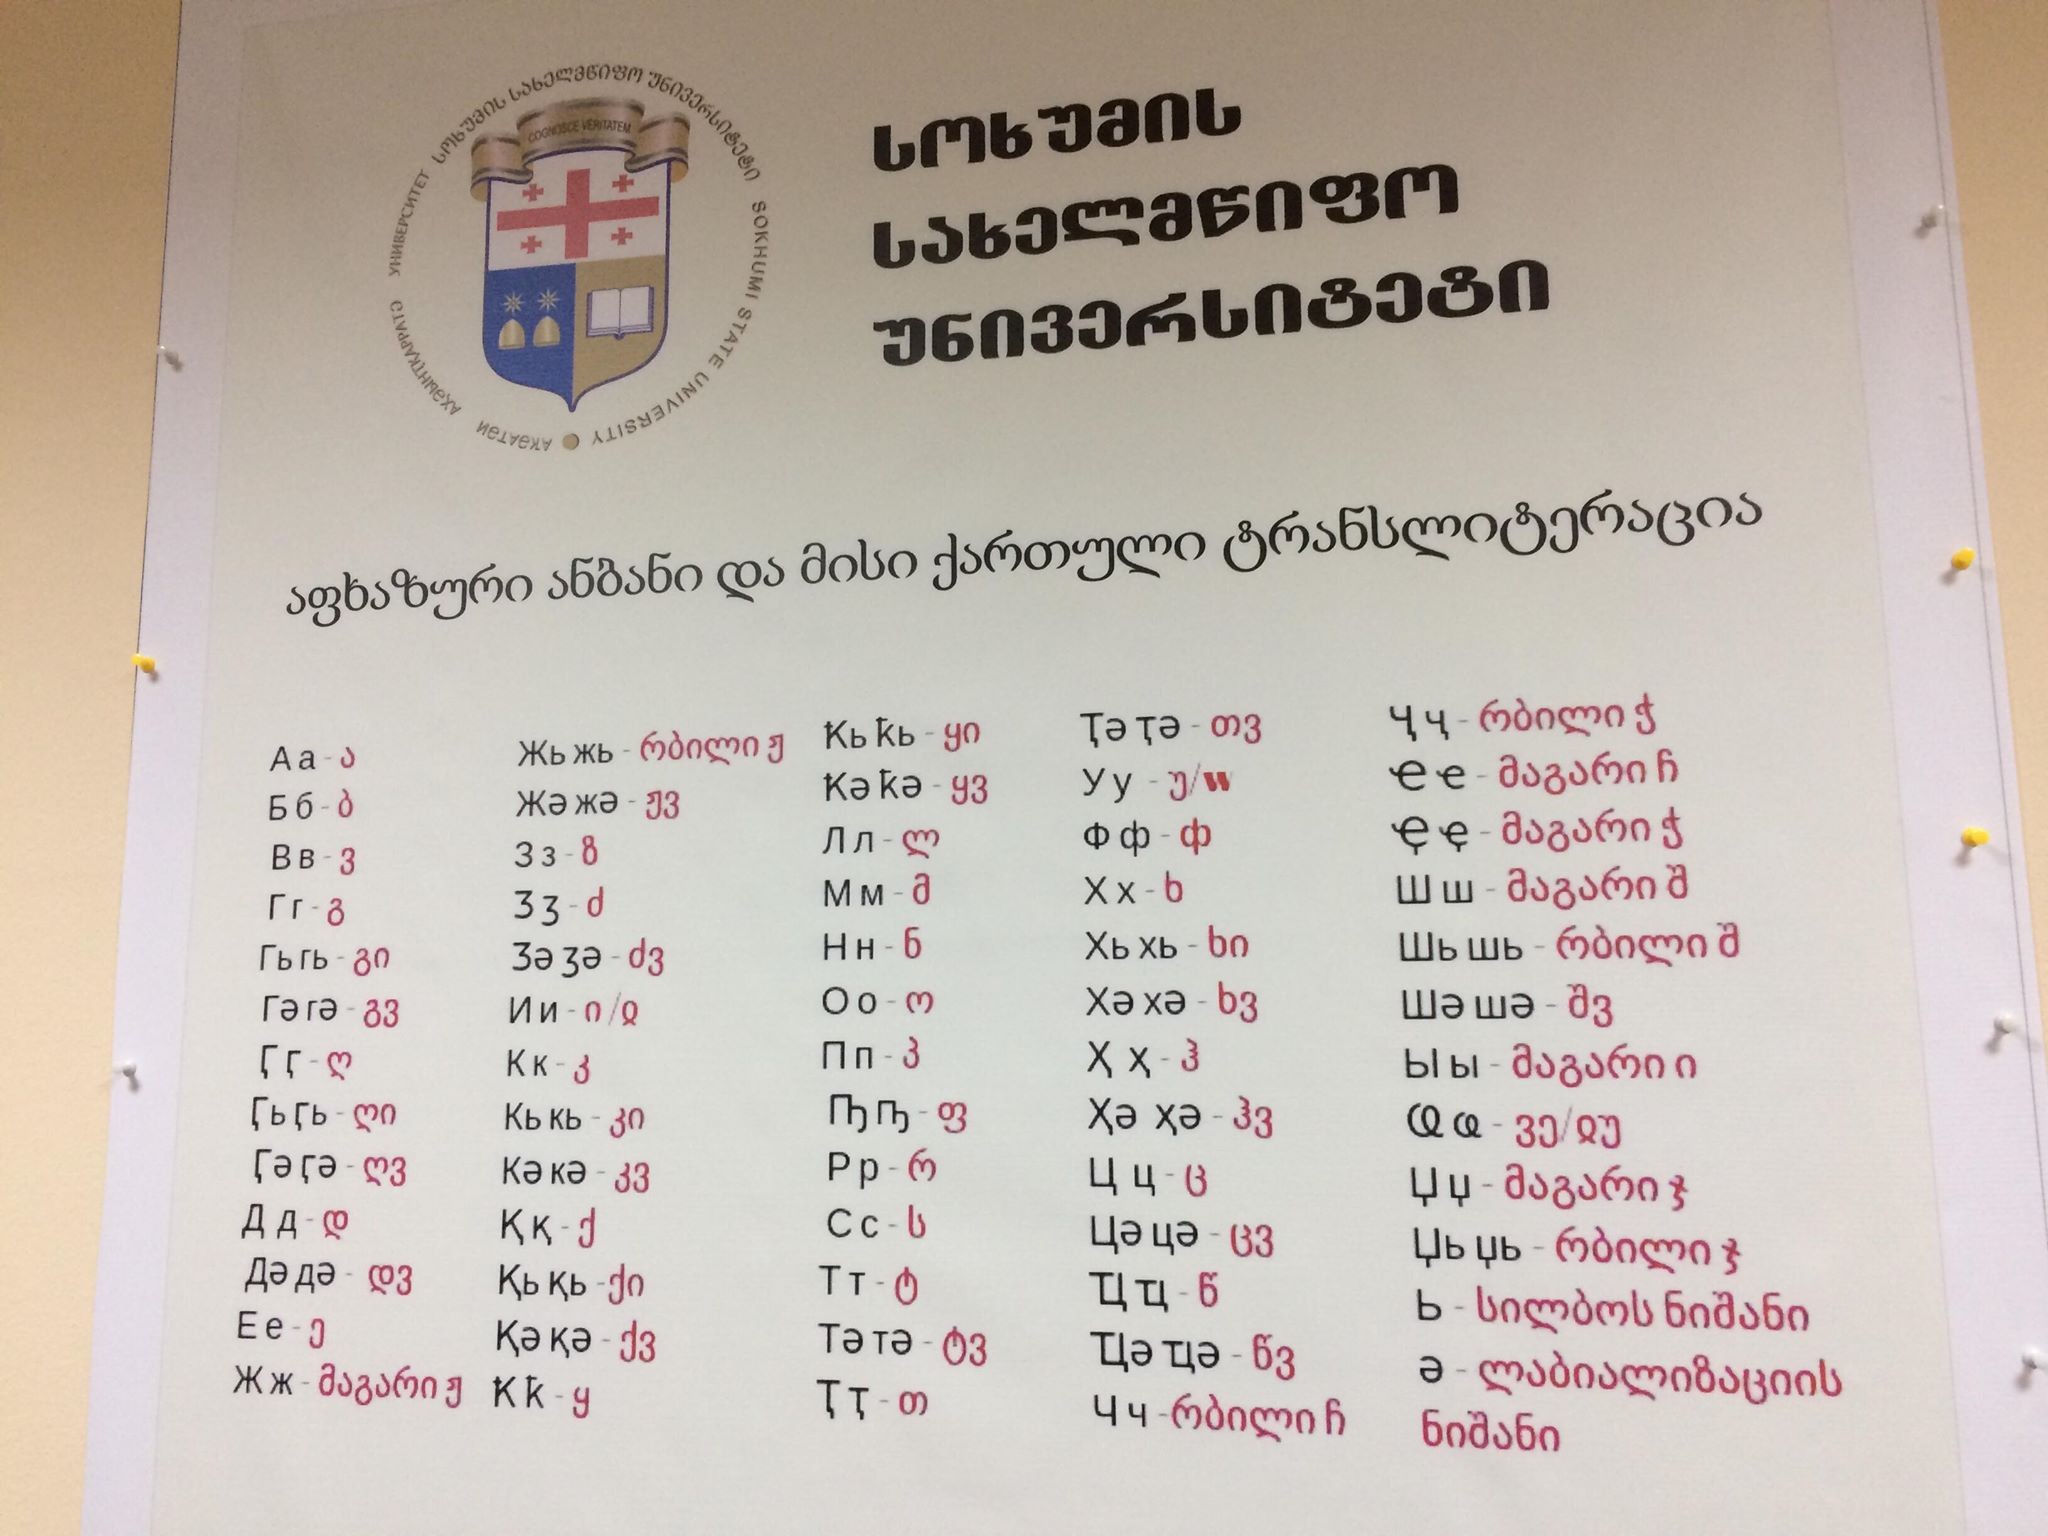 სოხუმის სახელმწიფო უნივერსიტეტი
SOKHUMI STATE UNIVERSITY
АҞӘАТӘИ АҲӘЫНҬҚАРРАТӘ УНИВЕРСИТЕТ
COGNOSCE VERITATEM
სოხუმის
სახელმწიფო
უნივერსიტეტი
აფხაზური ანბანი და მისი ქართული ტრანსლიტერაცია
А а - ა
Б б - ბ
В в - ვ
Г г - გ
Гь гь - გი
Гә гә - გვ
Ӷ ӷ - ღ
Ӷь ӷь - ღი
Ӷә ӷә - ღვ
Д д - დ
Дә дә - დვ
Е е - ე
Ж ж - მაგარი ჟ
Жь жь - რბილი ჟ
Жә жә - ჟვ
З з - ზ
Ӡ ӡ - ძ
Ӡә ӡә - ძვ
И и - ი/ჲ
К к - კ
Кь кь - კი
Кә кә - კვ
Қ қ - ქ
Қь қь - ქი
Қә қә - ქვ
Ҟ ҟ - ყ
Ҟь ҟь - ყი
Ҟә ҟә - ყვ
Л л - ლ
М м - მ
Н н - ნ
О о - ო
П п - პ
Ҧ ҧ - ფ
Р р - რ
С с - ს
Т т - ტ
Тә тә - ტვ
Ҭ ҭ - თ
Ҭә ҭә - თვ
У у - უ/w
Ф ф - ф
Х х - ხ
Хь хь - ხი
Хә хә - ხვ
Ҳ ҳ - ჰ
Ҳә ҳә - ჰვ
Ц ц - ც
Цә цә - ცვ
Ҵ ҵ - წ
Ҵә ҵә - წვ
Ч ч - რბილი ჩ
Ҷ ҷ - რბილი ჭ
Ҽ ҽ - მაგარი ჩ
Ҿ ҿ - მაგარი ჭ
Ш ш - მაგარი შ
Шь шь - რბილი შ
Шә шә - შვ
Ы ы - მაგარი ი
Ҩ ҩ - ვე/ჲუ
Џ џ - მაგარი ჯ
Џь џь - რბილი ჯ
Ь - სილბოს ნიშანი
ә - ლაბიალიზაციის
ნიშანი